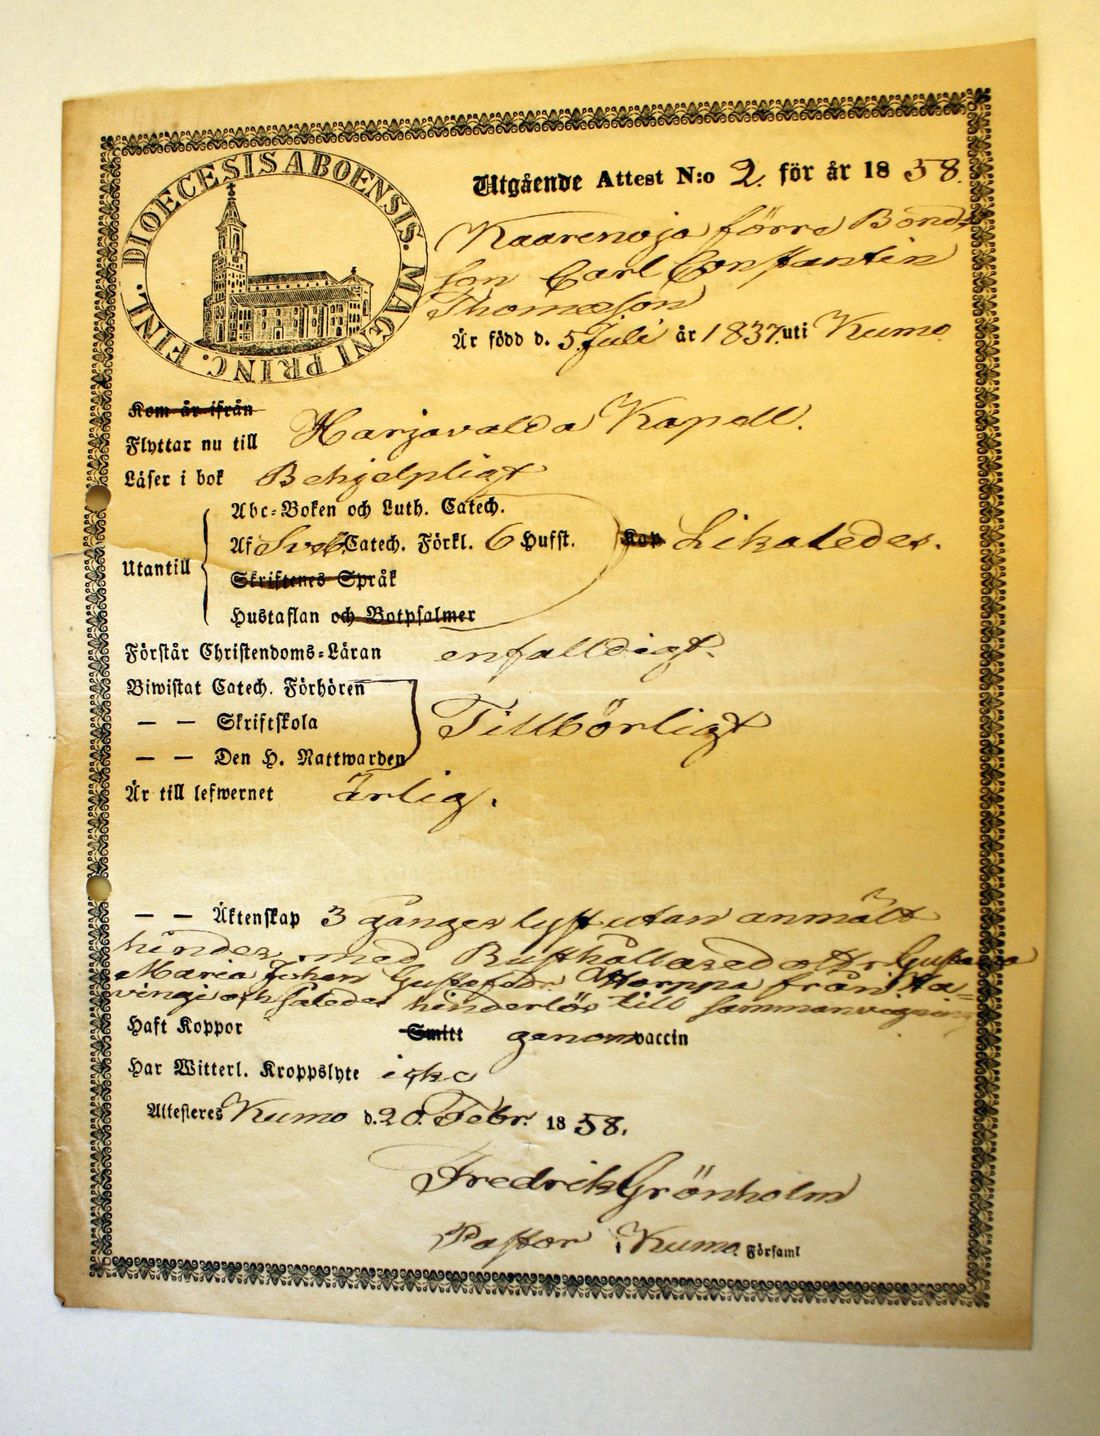 DIOECESIS ABOENSIS. MAGNI PRINC. FINL.
Utgående Attest N:o 2. för år 1858.
Kaarenoja förre Bonde
son Carl Constantin
Thomasson
Är född d. 5 Juli år 1837. uti Kumo
Kom är ifrån
Flyttar nu till Harjavalda Kapell.
Läser i bok Behjelpligt
Abc-Boken och Luth. Catech.
Utantill Af Sveb. Catech. Förkl. 6 Hufst. Kap Likaledes.
Skriftenes Språk
Hustaflan och Botpsalmer
Förstår Christendoms-Läran enfalldigt.
Biwistat Catech. Förhören
— — Skriftskola Tillbörligt
— — Den H. Nattwarden
Är till lefwernet Ärlig.
— — Äktenskap 3 gånger lyst utan anmält
hinder, med Rusthållaredottr Gustava
Maria Johan Gustafsdr. Horppa från
och således hinderlös till sammanvigning
Haft Koppor Smitt genom vaccin
Har Witterl. Kroppslyte icke
Attesteres Kumo d. 20. Febr. 1858.
Fredrik Grönholm
Pastor i Kumo Församl